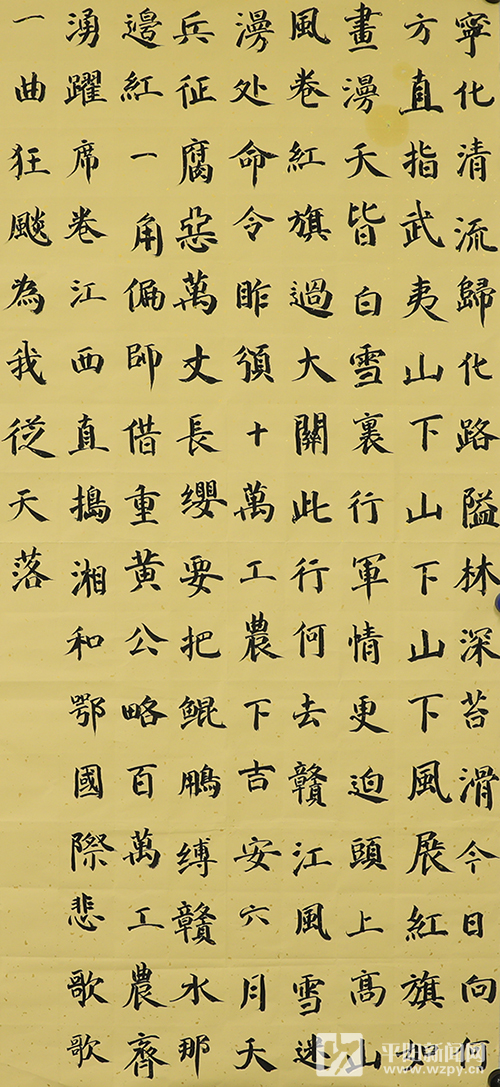 寧化清流歸化路隘林深苔滑今日向何
方直指武夷山下山下山下風展紅旗如
畫漫天皆白雪裏行軍情更迫頭上高山
風卷紅旗過大關此行何去贛江風雪迷
漫处命令昨頒十萬工農下吉安六月天
兵征腐惡萬丈長纓要把鯤鵬縛贛水那
邊紅一角偏師借重黃公略百萬工農齊
湧躍席卷江西直搗湘和鄂國際悲歌歌
一曲狂飈為我從天落
平阳新闻网
www.wzpy.cn